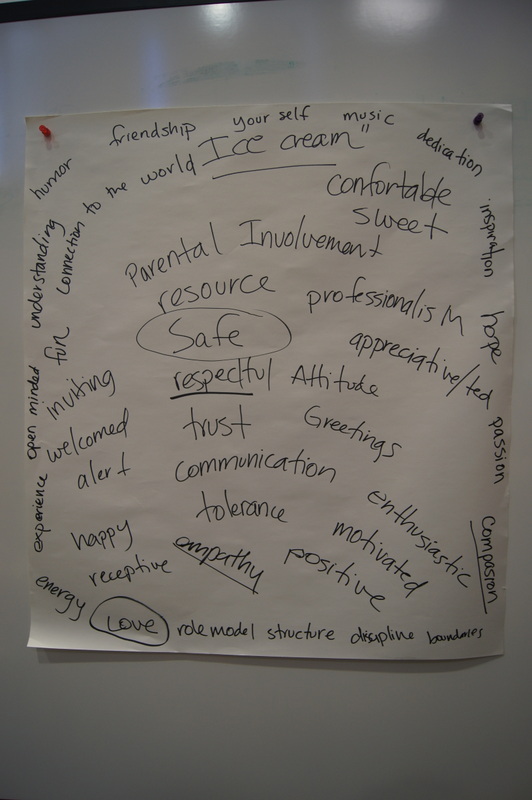 friendship
your self
music
Ice cream"
dedication
humor
connection to the world
confortable
sweet
inspiration
understanding
Parental Involvement
resource
professionalism
hope
Safe
appreciative/ted
fun
inviting
respectful
Attitude
open minded
welcomed
trust
Greetings
passion
alert
communication
experience
tolerance
enthusiastic
happy
motivated
Compasion
receptive
empathy
positive
energy
Love
role model
structure
discipline
boundaries